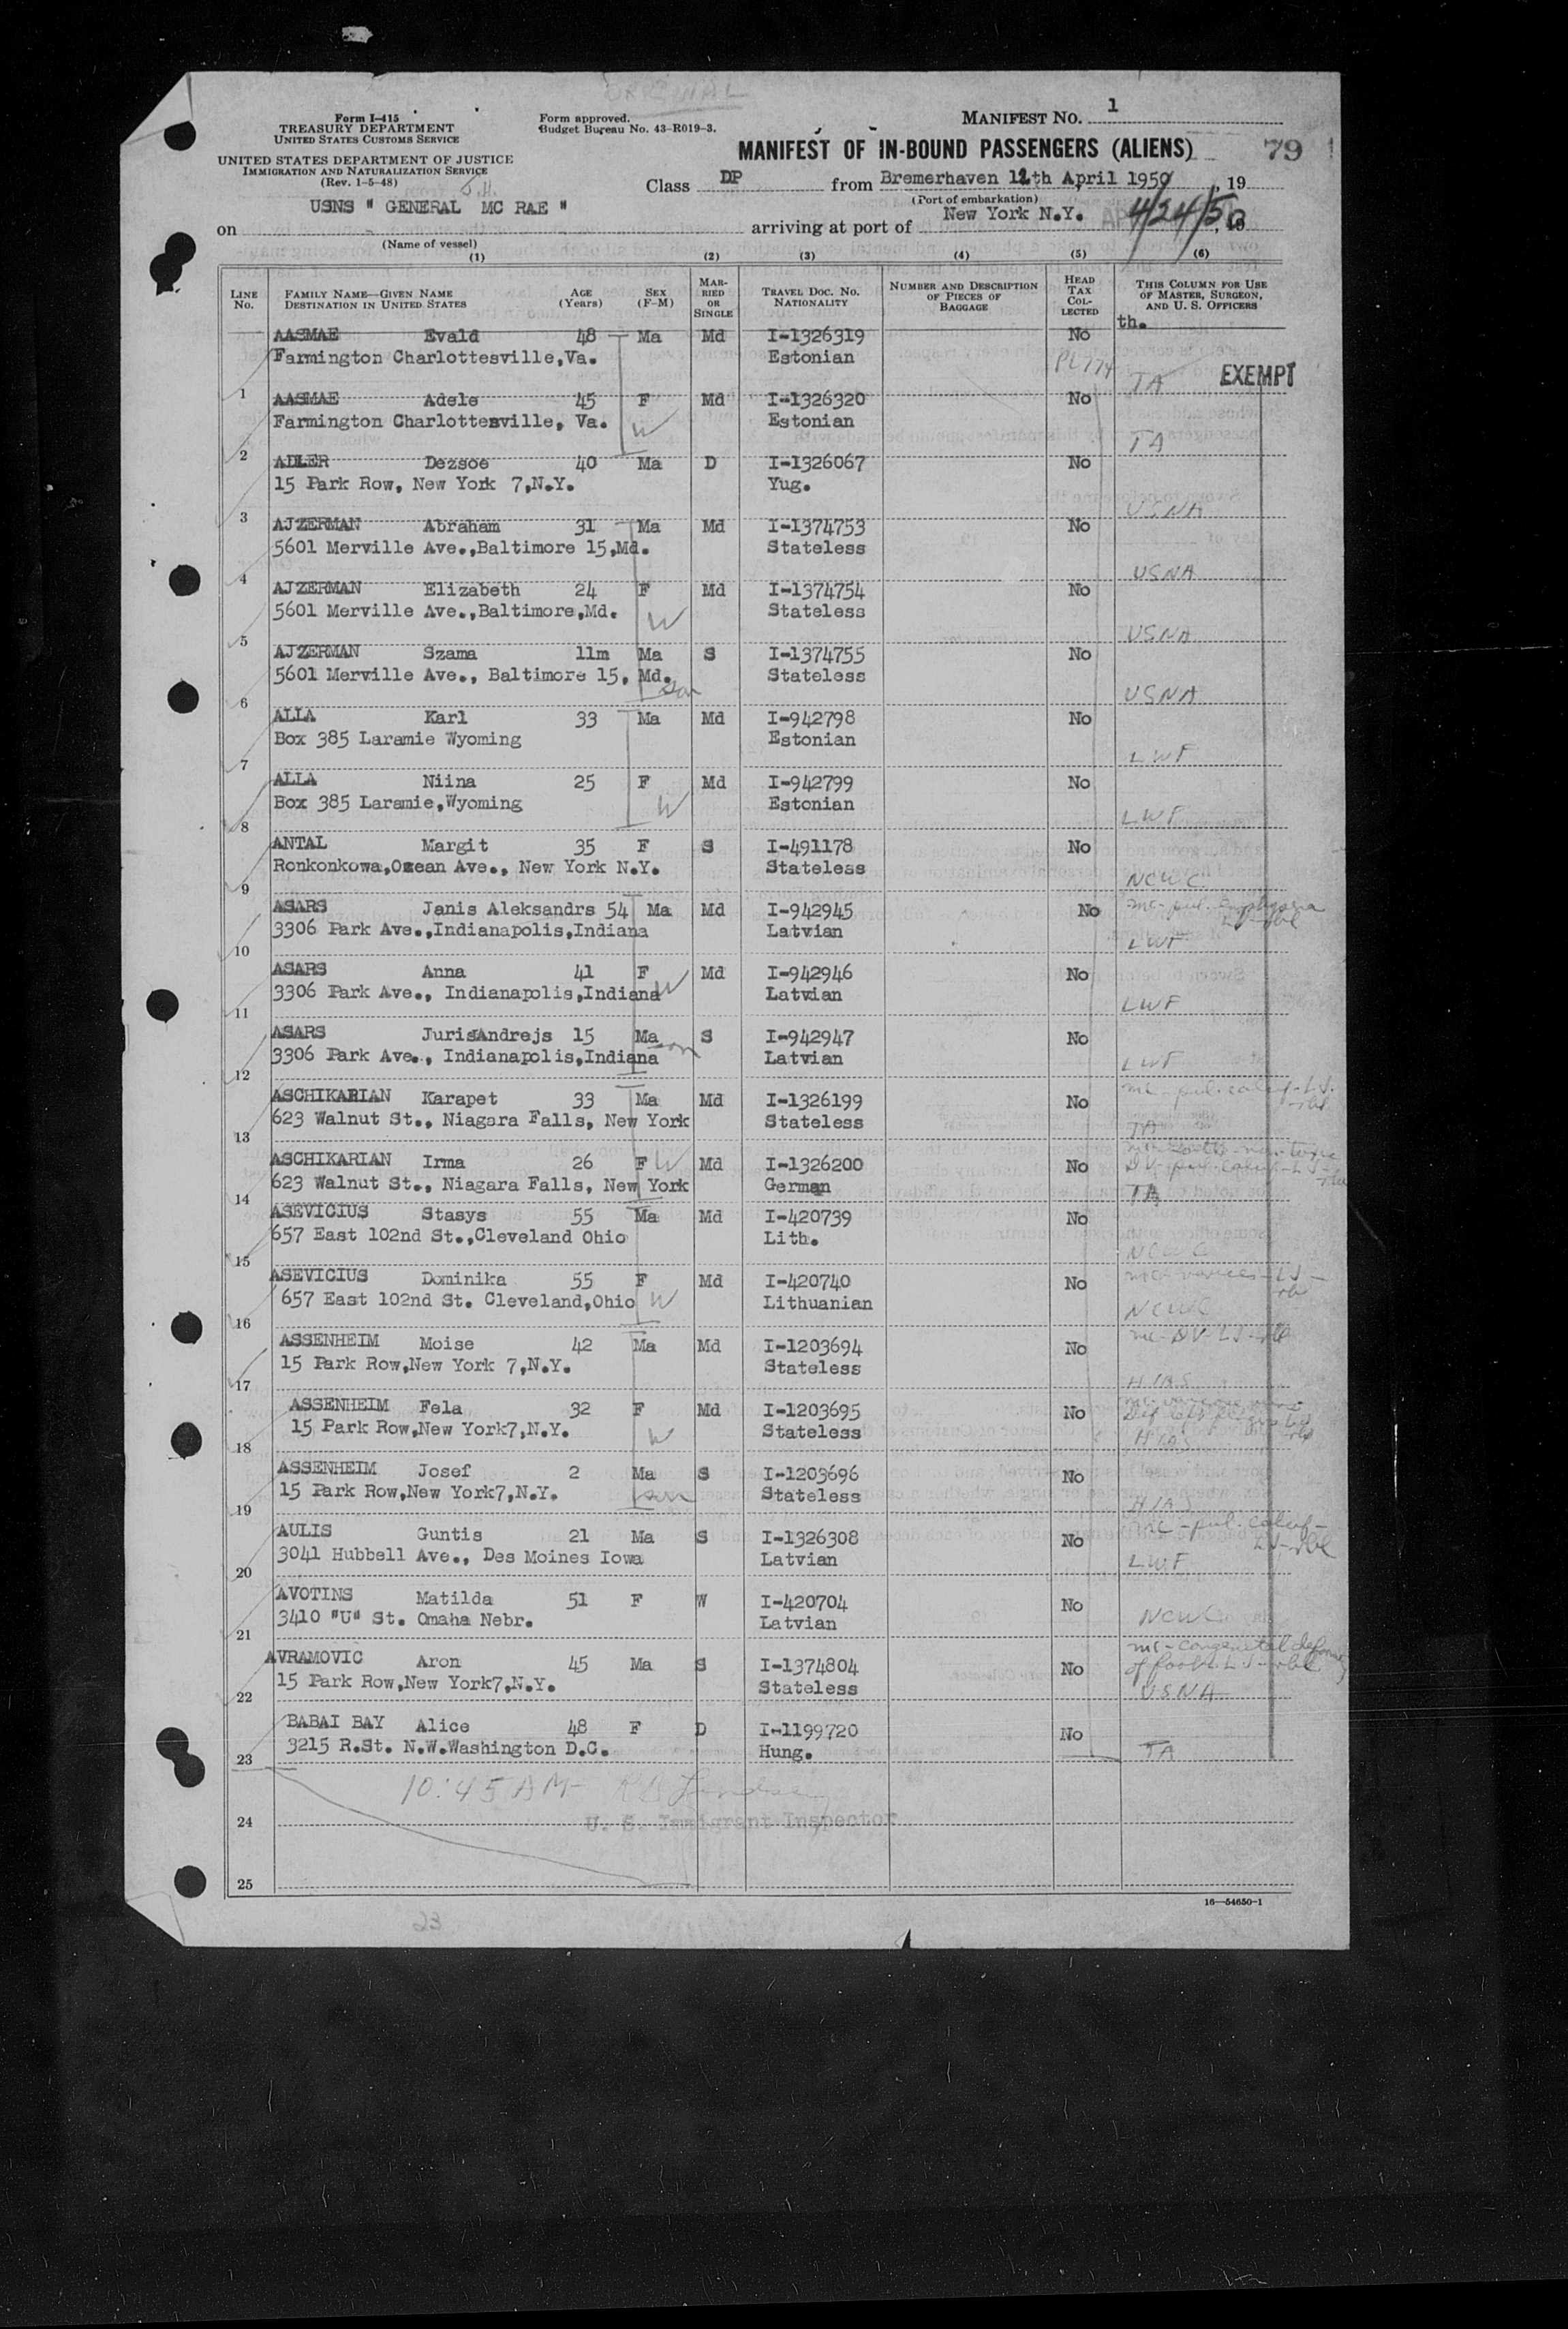 ORIGINAL
Form I-415
TREASURY DEPARTMENT
UNITED STATES CUSTOMS SERVICE
UNITED STATES DEPARTMENT OF JUSTICE
IMMIGRATION AND NATURALIZATION SERVICE
(Rev. 1-5-48)
Form approved.
Budget Bureau No. 43-R019-3.
MANIFEST NO. 1
MANIFEST OF IN-BOUND PASSENGERS (ALIENS) 79
Class DP from Bremerhaven 12th April 1950, 19
(Port of embarkation)
on USNS " GENERAL MC RAE " arriving at port of New York N.Y. 4/24/50, 19
(Name of vessel)
(1) (2) (3) (4) (5) (6)
LINE NO. FAMILY NAME—GIVEN NAME DESTINATION IN UNITED STATES AGE (Years) SEX (F-M) MARRIED OR SINGLE TRAVEL DOC. NO. NATIONALITY NUMBER AND DESCRIPTION OF PIECES OF BAGGAGE HEAD TAX COLLECTED THIS COLUMN FOR USE OF MASTER, SURGEON, AND U. S. OFFICERS
th.
AASMAE Evald 48 Ma Md I-1326319 No
Farmington Charlottesville,Va. Estonian PL 774 TA EXEMPT
1
AASMAE Adele 45 F Md I-1326320 No
Farmington Charlottesville, Va. W Estonian TA
2
ADLER Dezsoe 40 Ma D I-1326067 No
15 Park Row, New York 7,N.Y. Yug. USNA
3
AJZERMAN Abraham 31 Ma Md I-1374753 No
5601 Merville Ave.,Baltimore 15,Md. Stateless USNA
4
AJZERMAN Elizabeth 24 F Md I-1374754 No
5601 Merville Ave.,Baltimore,Md. W Stateless USNA
5
AJZERMAN Szama 11m Ma S I-1374755 No
5601 Merville Ave., Baltimore 15, Md. son Stateless USNA
6
ALLA Karl 33 Ma Md I-942798 No
Box 385 Laramie Wyoming Estonian LWF
7
ALLA Niina 25 F Md I-942799 No
Box 385 Laramie,Wyoming W Estonian LWF
8
ANTAL Margit 35 F S I-491178 No
Ronkonkowa,Ozean Ave., New York N.Y. Stateless NCWC
9
ASARS Janis Aleksandrs 54 Ma Md I-942945 No mc-pul. emphysema
3306 Park Ave.,Indianapolis,Indiana Latvian LWF
10
ASARS Anna 41 F Md I-942946 No
3306 Park Ave., Indianapolis,Indiana W Latvian LWF
11
ASARS JurisAndrejs 15 Ma S I-942947 No
3306 Park Ave., Indianapolis,Indiana son Latvian LWF
12
ASCHIKARIAN Karapet 33 Ma Md I-1326199 No mc-pul. calcif-LJ-
623 Walnut St., Niagara Falls, New York Stateless TA
13
ASCHIKARIAN Irma 26 F W Md I-1326200 No
623 Walnut St., Niagara Falls, New York German DV-pul-calcif-LJ- TA
14
ASEVICIUS Stasys 55 Ma Md I-420739 No
657 East 102nd St.,Cleveland Ohio Lith. NCWC
15
ASEVICIUS Dominika 55 F Md I-420740 No mc-varices-LJ-
657 East 102nd St. Cleveland,Ohio W Lithuanian NCWC
16
ASSENHEIM Moise 42 Ma Md I-1203694 No mc-DV-LJ-
15 Park Row,New York 7,N.Y. Stateless HIAS
17
ASSENHEIM Fela 32 F Md I-1203695 No
15 Park Row,New York7,N.Y. W Stateless HIAS
18
ASSENHEIM Josef 2 Ma S I-1203696 No
15 Park Row,New York7,N.Y. son Stateless HIAS
19
AULIS Guntis 21 Ma S I-1326308 No mc-pul. calcif-
3041 Hubbell Ave., Des Moines Iowa Latvian LWF
20
AVOTINS Matilda 51 F W I-420704 No
3410 "U" St. Omaha Nebr. Latvian NCWC
21
AVRAMOVIC Aron 45 Ma S I-1374804 No mc-congenital deformity
15 Park Row,New York7,N.Y. Stateless of foot-LJ- USNA
22
BABAI BAY Alice 48 F D I-1199720 No
3215 R.St. N.W.Washington D.C. Hung. TA
23
10:45 AM
U. S. Immigrant Inspector
24
25
16—54650-1
23